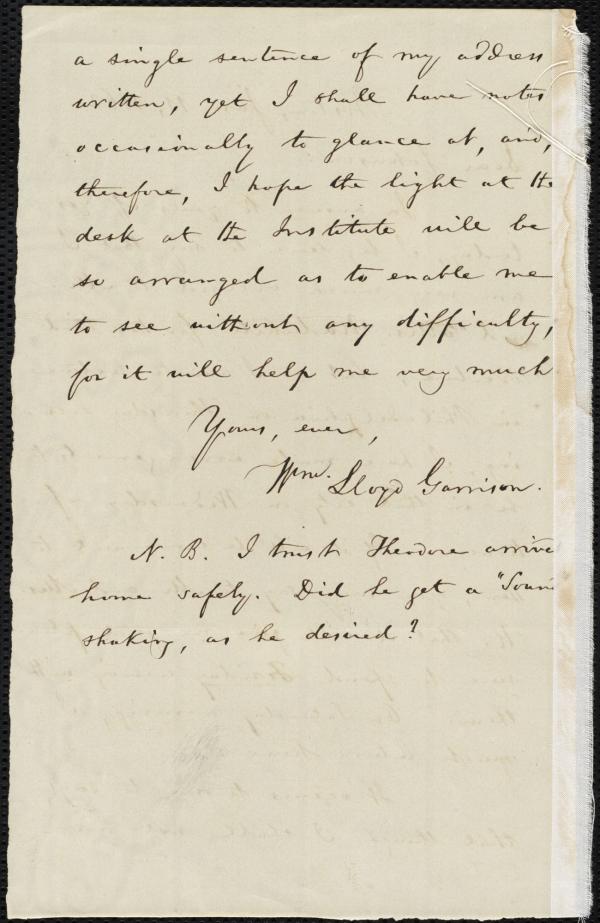 a single sentence of my address
written, yet I shall have notes
occasionally to glance at, and,
therefore, I hope the light at the
desk at the Institute will be
so arranged as to enable me
to see without any difficulty,
for it will help me very much
Yours, ever,
Wm. Lloyd Garrison.
N. B. I trust Theodore arrive
home safely. Did he get a "Soun
shaking, as he desired?